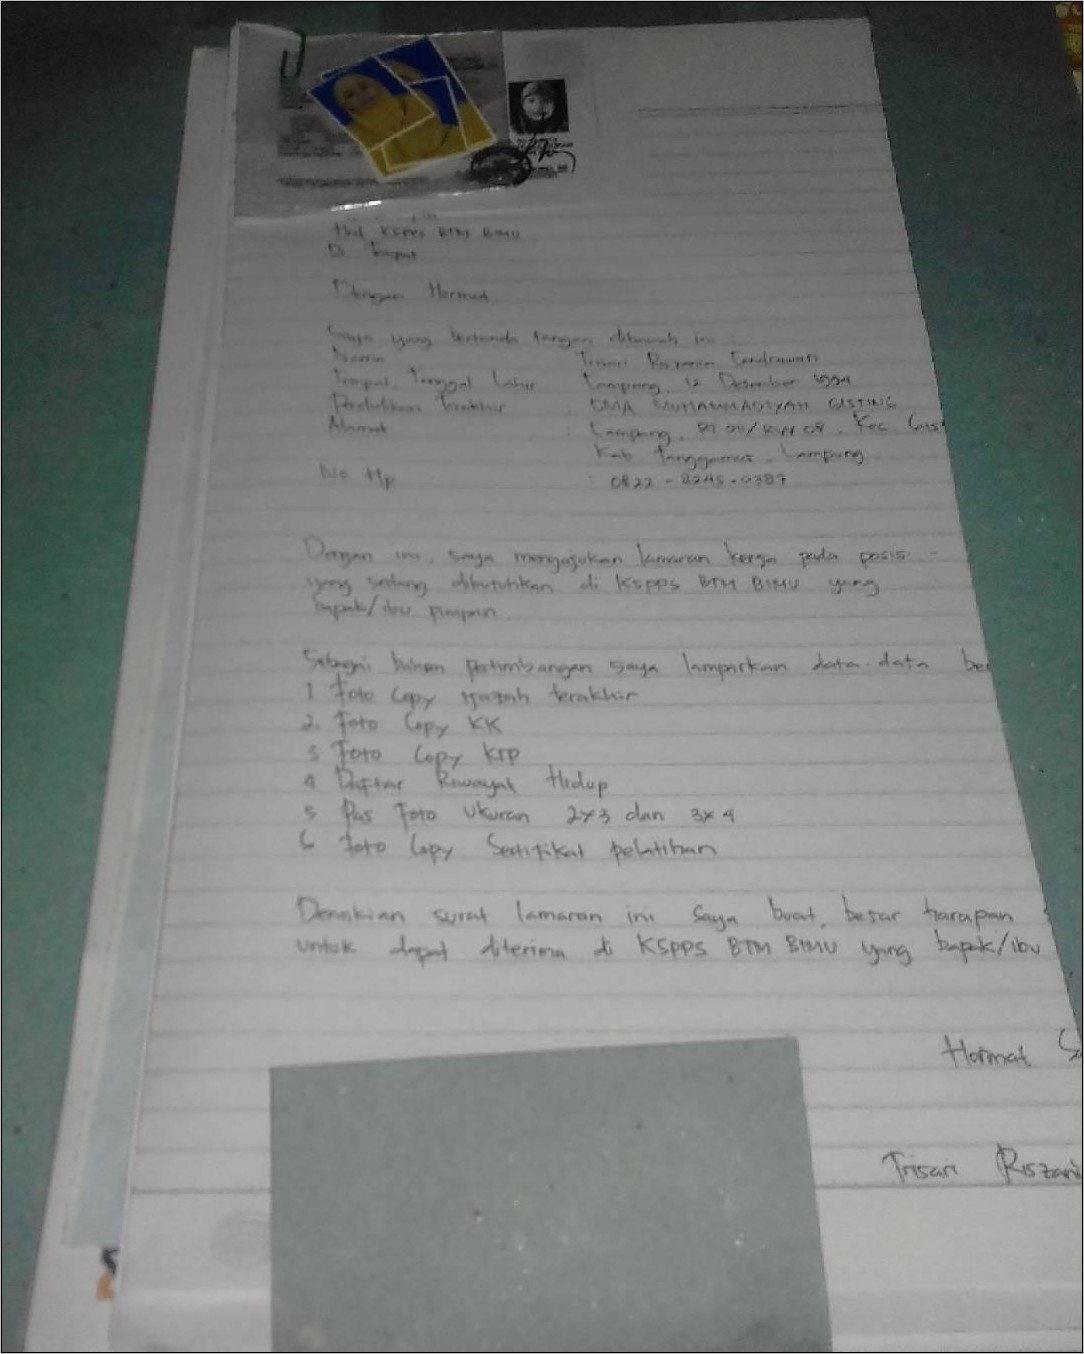 KSPPS BTM BIMU
Di Tempat
Dengan Hormat
Saya yang bertanda tangan dibawah ini :
Nama Trisari
Tempat, Tanggal Lahir Campang, 12 Desember 1994
Pendidikan Terakhir : SMA MUHAMMADIYAH GISTING
Alamat : Campang, RT 04/RW 08, Kec. Gist
Kab Tanggamus, Lampung
No Hp : 0822-8245-0387
Dengan ini, saya mengajukan lamaran kerja pada posisi
yang sedang dibutuhkan di KSPPS BTM BIMU yang
bapak/ibu pimpin.
Sebagai bahan pertimbangan saya lampirkan data-data ber
1 Foto Copy Ijazah terakhir
2. Foto Copy KK
3 Foto Copy KTP
4 Daftar Riwayat Hidup
5 Pas Foto Ukuran 2x3 dan 3x4
6 Foto Copy Sertifikat pelatihan
Demikian surat lamaran ini saya buat, besar harapan
untuk dapat diterima di KSPPS BTM BIMU yang bapak/ibu
Hormat Sa
Trisari Riszani